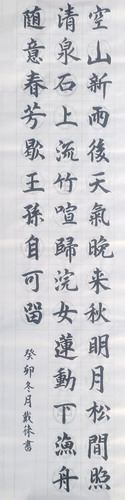 空山新雨後天氣晚来秋明月松間照
清泉石上流竹喧歸浣女蓮動下漁舟
随意春芳歇王孫自可留
癸卯冬月戴徕書